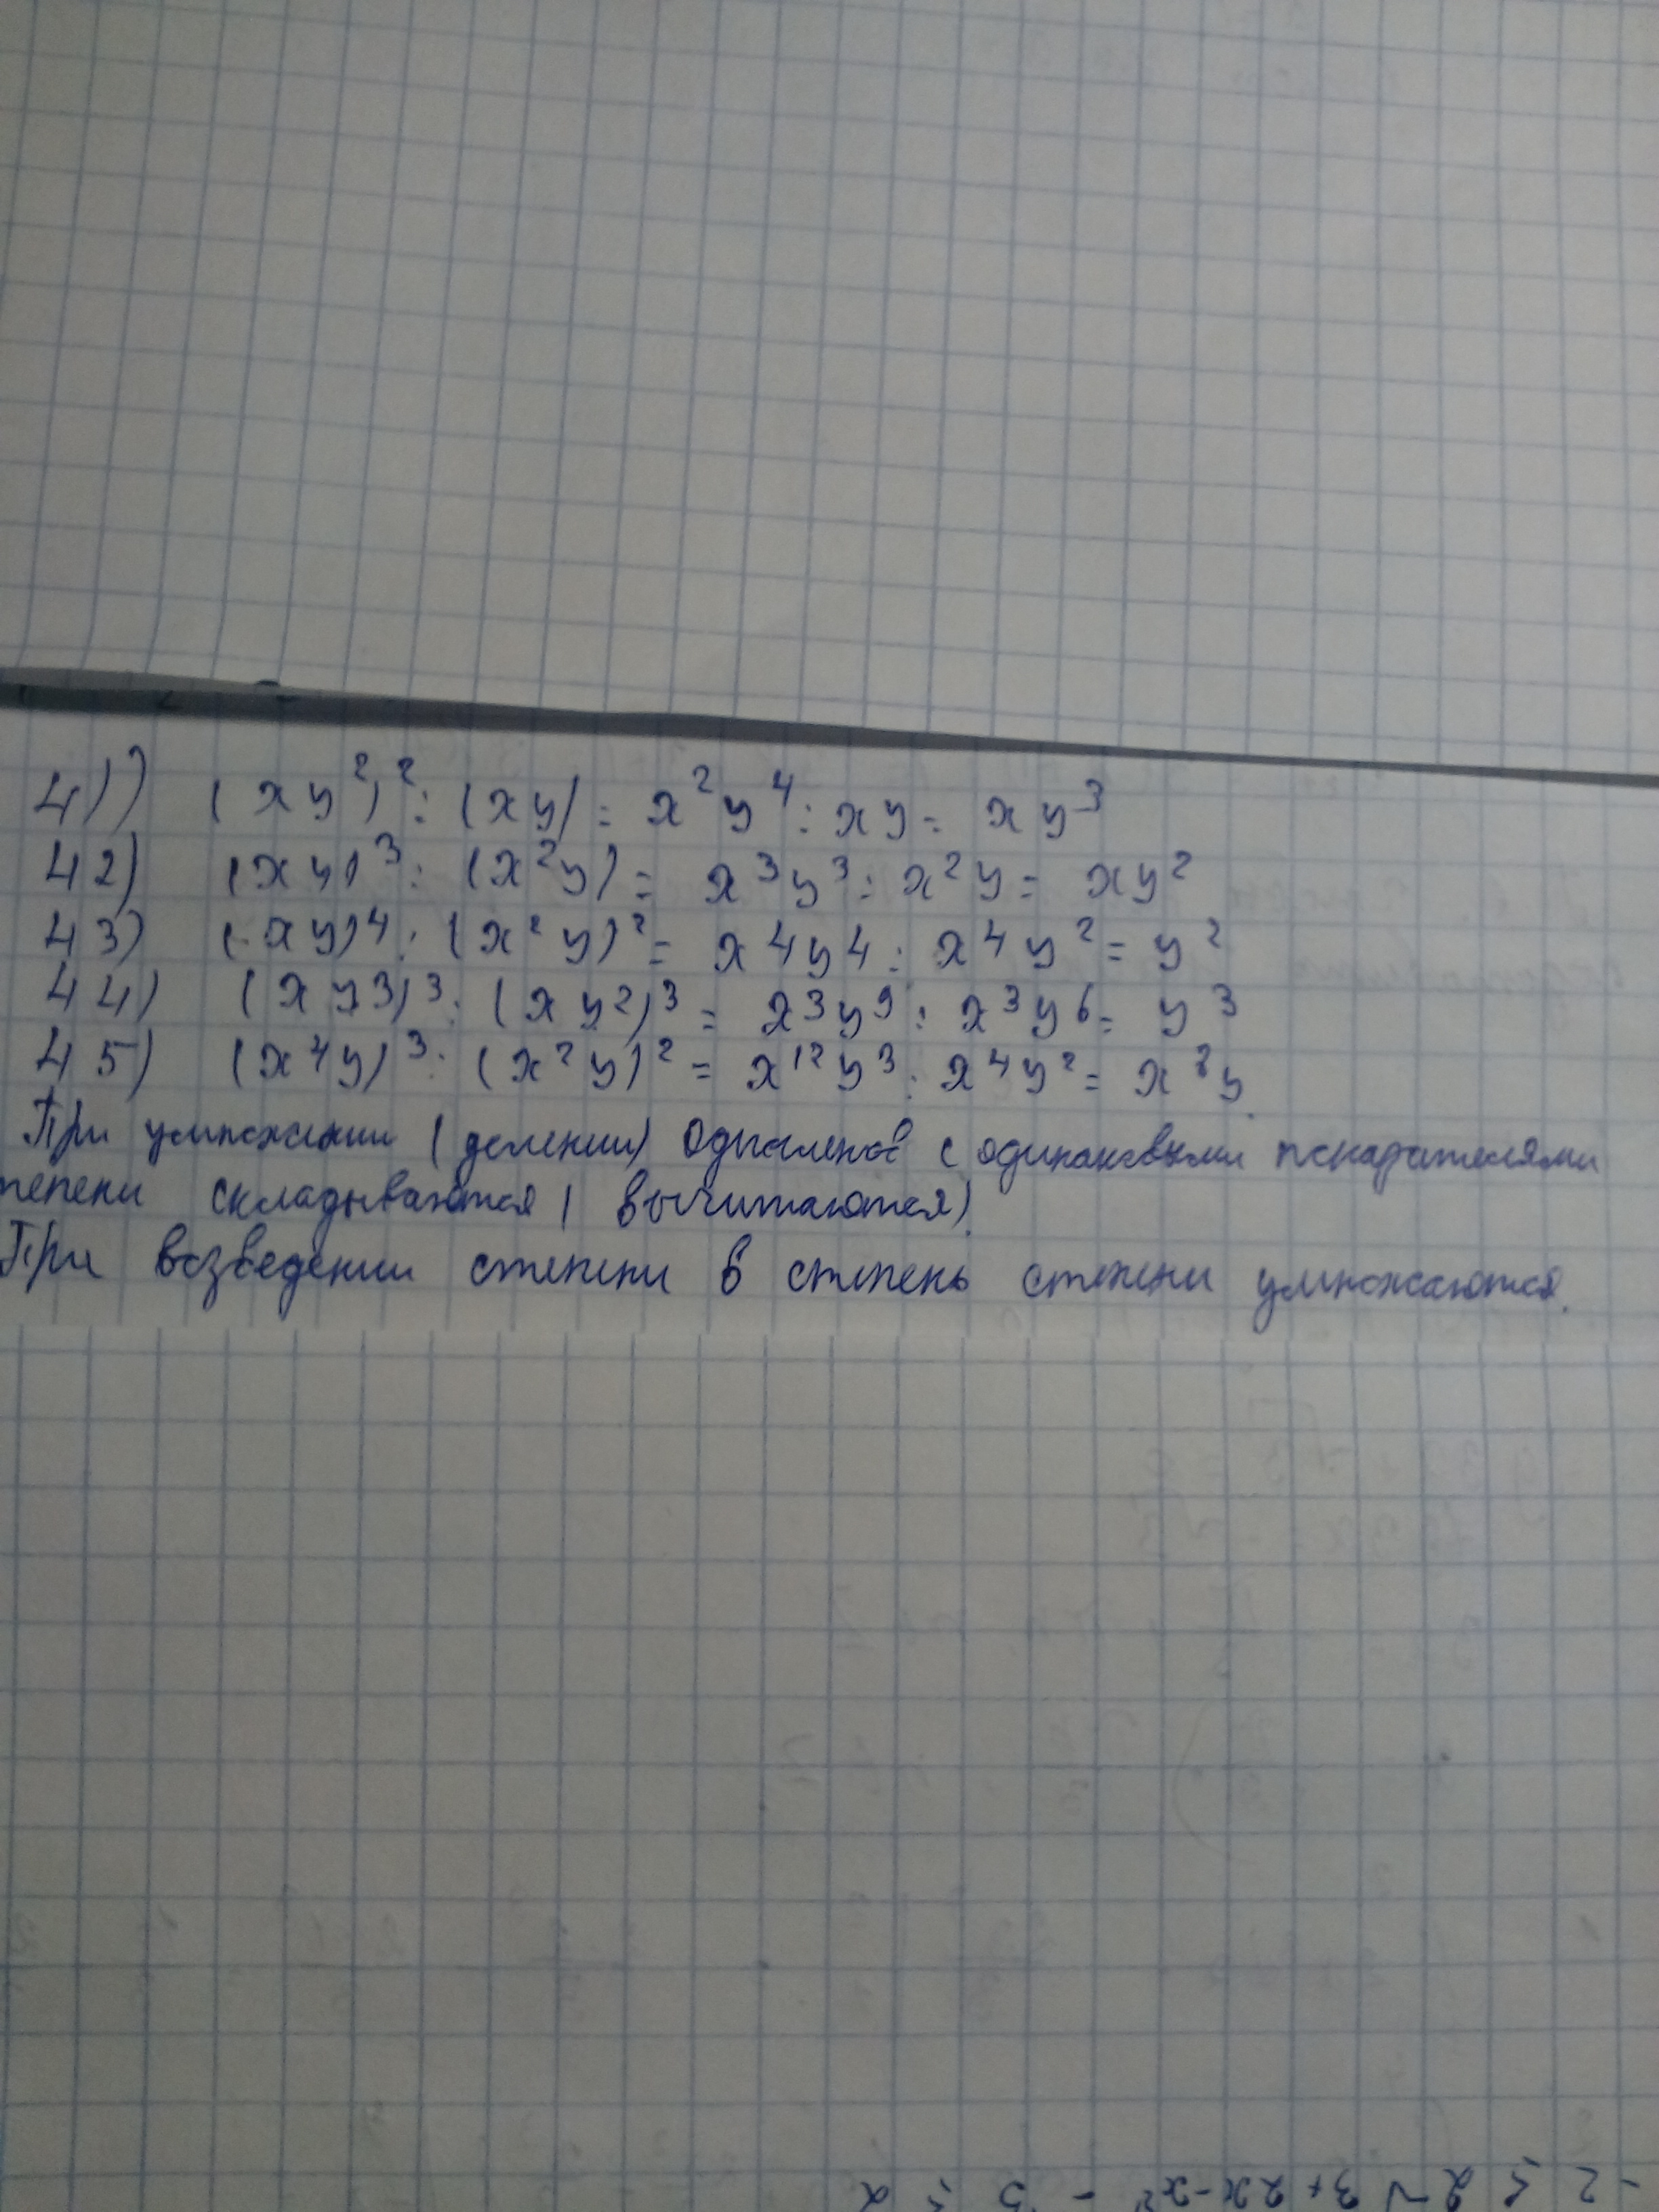 41) (xy²)² : (xy) = x²y⁴ : xy = xy³
42) (xy)³ : (x²y) = x³y³ : x²y = xy²
43) (xy)⁴ : (x²y)² = x⁴y⁴ : x⁴y² = y²
44) (xy³)³ : (xy²)³ = x³y⁹ : x³y⁶ = y³
45) (x⁴y)³ : (x²y)² = x¹²y³ : x⁴y² = x⁸y.
При умножении (делении) одночленов с одинаковыми показателями
тепени складываются (вычитаются).
При возведении степени в степень степени умножаются.